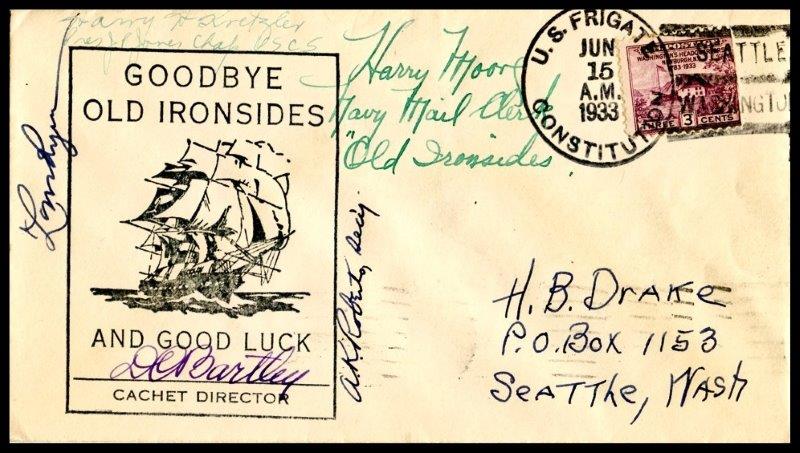 Harry H Kretzler
GOODBYE
OLD IRONSIDES
AND GOOD LUCK
DCBartley
CACHET DIRECTOR
Harry Moore
Navy Mail Clerk
"Old Ironsides"
A.K. Roberts, Sec'y.
U.S. FRIGATE CONSTITUTION
JUN
15
A.M.
1933
WASHINGTON'S HEADQUARTERS
NEWBURGH, N.Y.
1783-1933
THREE 3 CENTS
SEATTLE
WASHINGTON
H. B. DRAKE
P.O. BOX 1153
SEATTLE, WASH